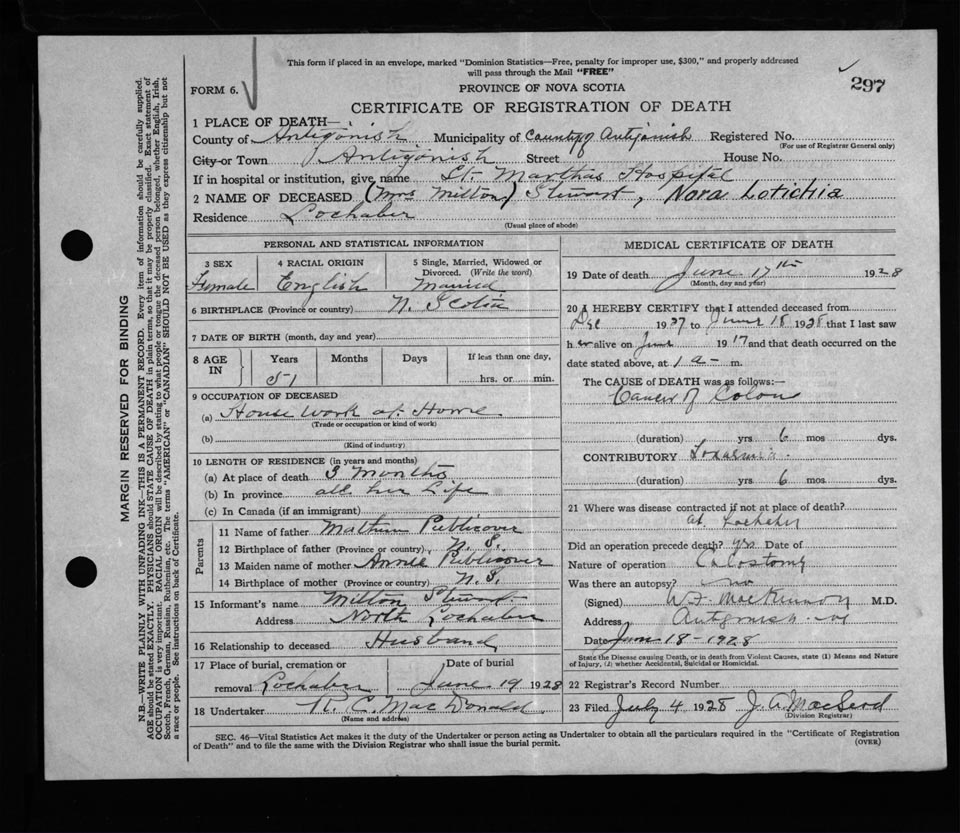 This form if placed in an envelope, marked "Dominion Statistics—Free, penalty for improper use, $300," and properly addressed
will pass through the Mail "FREE"
297
FORM 6.
PROVINCE OF NOVA SCOTIA
CERTIFICATE OF REGISTRATION OF DEATH
1 PLACE OF DEATH—
County of Antigonish Municipality of County of Antigonish Registered No.
(For use of Registrar General only)
City or Town Antigonish Street House No.
If in hospital or institution, give name St. Marthas Hospital
2 NAME OF DECEASED (Mrs Milton) Stewart, Nora Lotichia
Residence Lochaber
(Usual place of abode)
PERSONAL AND STATISTICAL INFORMATION
3 SEX 4 RACIAL ORIGIN 5 Single, Married, Widowed or Divorced. (Write the word)
Female English Married
6 BIRTHPLACE (Province or country) N. Scotia
7 DATE OF BIRTH (month, day and year)
8 AGE IN Years Months Days If less than one day,
51 hrs. or min.
9 OCCUPATION OF DECEASED
(a) House work at Home
(Trade or occupation or kind of work)
(b)
(Kind of industry)
10 LENGTH OF RESIDENCE (in years and months)
(a) At place of death 3 Months
(b) In province all her Life
(c) In Canada (if an immigrant)
Parents
11 Name of father Publicover
12 Birthplace of father (Province or country) N. S.
13 Maiden name of mother Annie Publicover
14 Birthplace of mother (Province or country) N. S.
15 Informant's name Milton Stewart
Address North Lochaber
16 Relationship to deceased Husband
17 Place of burial, cremation or Date of burial
removal Lochaber June 19 1928
18 Undertaker R. C. MacDonald
(Name and address)
MEDICAL CERTIFICATE OF DEATH
19 Date of death June 17th 1928
(Month, day and year)
20 I HEREBY CERTIFY that I attended deceased from
Dec 1927 to June 18 1928 that I last saw
her alive on June 1917 and that death occurred on the
date stated above, at 1 a m.
The CAUSE of DEATH was as follows:—
Cancer of Colon
(duration) yrs 6 mos dys.
CONTRIBUTORY
(duration) yrs 6 dys.
21 Where was disease contracted if not at place of death?
at Lochaber
Did an operation precede death? yes Date of
Nature of operation Colostomy
Was there an autopsy? no
(Signed) W. F. MacKinnon M.D.
Address Antigonish
Date June 18-1928
State the Disease causing Death, or in death from Violent Causes, state (1) Means and Nature
of Injury, (2) whether Accidental, Suicidal or Homicidal.
22 Registrar's Record Number
23 Filed July 4 1928 J. A. MacLeod
(Division Registrar)
SEC. 46—Vital Statistics Act makes it the duty of the Undertaker or person acting as Undertaker to obtain all the particulars required in the "Certificate of Registration
of Death" and to file the same with the Division Registrar who shall issue the burial permit.
(OVER)
MARGIN RESERVED FOR BINDING
N.B.—WRITE PLAINLY WITH UNFADING INK—THIS IS A PERMANENT RECORD. Every item of information should be carefully supplied.
AGE should be stated EXACTLY. PHYSICIANS should STATE CAUSE OF DEATH in plain terms, so that it may be properly classified. Exact statement of
OCCUPATION is very important. RACIAL ORIGIN will be described by stating to what people or tongue the deceased person belonged, whether English, Irish,
Scotch, French, German, Russian, Ruthenian, etc. The terms "AMERICAN" or "CANADIAN" SHOULD NOT BE USED as they express citizenship but not
a race or people. See instructions on back of Certificate.